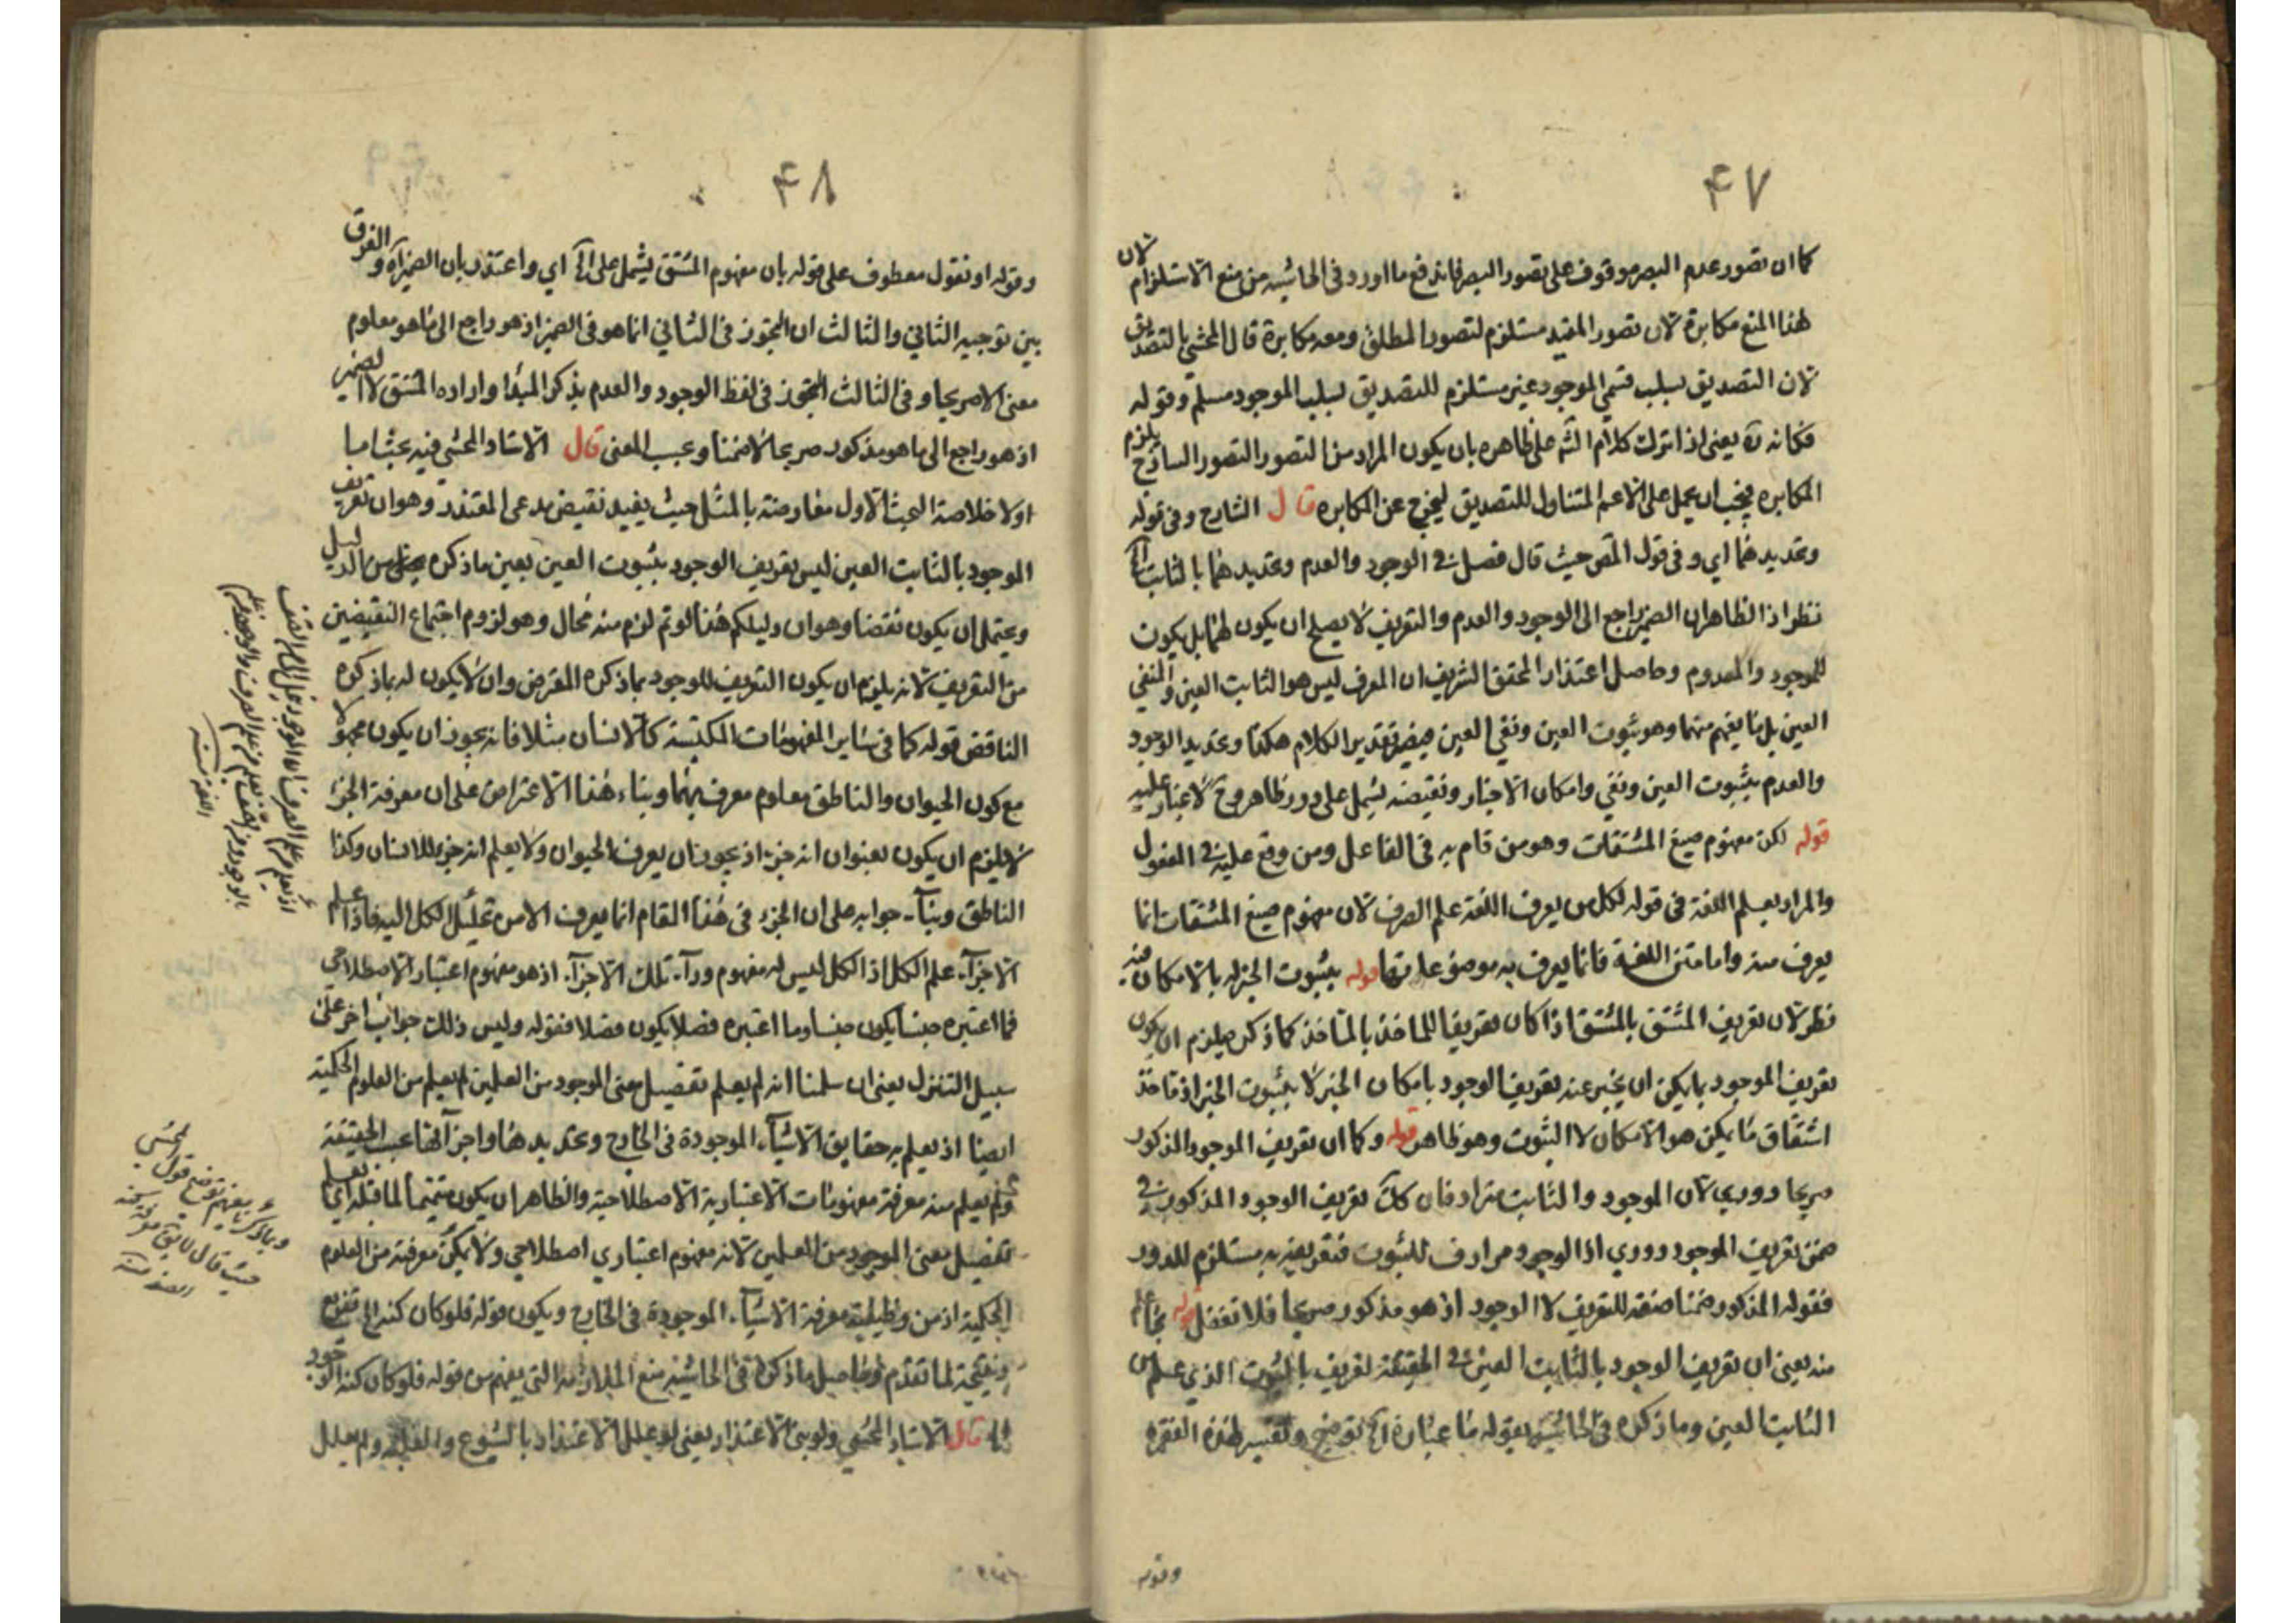 ۴۷
كما ان تصور عدم البصر موقوف على تصور البصر فاندفع ما اورد فى الحاشيه من منع الاستلزام لان
هذا المنع مكابرة لان تصور المقيد مستلزم لتصور المطلق ومنعه مكابرة قال المحشي بالتصديق
لان التصديق بسلب قسمي الموجود غير مستلزم للتصديق بسلب الموجود مسلم وقوله
فكانه آه يعنى اذا ترك كلام الش على ظاهره بان يكون المراد من التصور التصور الساذج يلزم
المكابره فيجب ان يحمل على الاعم المتناول للتصديق ليخرج عن المكابره قال الشارح وفى قوله
وتحديدهما اي وفى قول المص حيث قال فصل فى الوجود والعدم وتحديدهما بالثابت آه
نظر اذ الظاهر ان الضمير راجع الى الوجود والعدم والتعريف لا يصلح ان يكون لهما بل يكون
للموجود والمعدوم وحاصل اعتذار المحقق الشريف ان المعرف ليس هو الثابت العين والمنفي
العين بل ما يفهم منهما وهو ثبوت العين ونفي العين فيصير تقدير الكلام هكذا وتحديد الوجود
والعدم بثبوت العين ونفي وامكان الاخبار ونقيضه يشمل على دور ظاهر وح لا غبار عليه
قوله لكن مفهوم صيغ المشتقات وهو من قام به فى الفاعل ومن وقع عليه فى المفعول
والمراد بعلم اللغة فى قوله لكل من يعرف اللغة علم الصرف لان مفهوم صيغ المشتقات انما
يعرف منه واما متن اللغة فانما يعرف به موضوعاتها قوله بثبوت الخبر له بالامكان فيه
نظر لان تعريف المشتق بالمشتق اذا كان تعريفا للماخذ بالماخذ كما ذكر فيلزم ان يكون
تعريف الموجود بما يمكن ان يخبر عنه تعريف الوجود بامكان الخبر لا بثبوت الخبر اذ ماخذ
اشتقاق ما يمكن هو الامكان لا الثبوت وهو ظاهر قوله وكما ان تعريف الموجود المذكور
صريحا دوري لان الموجود والثابت مترادفان كك تعريف الوجود المذكور فى
ضمن تعريف الموجود دوري اذ الوجود مرادف للثبوت فتعريفه به مستلزم للدور
فقوله المذكور ضمنا صفة للتعريف لا الوجود اذ هو مذكور صريحا فلا تغفل قوله بما علم
منه يعنى ان تعريف الوجود بالثابت العين فى الحقيقة تعريف بالثبوت الذي علم من
الثابت العين وما ذكره فى الحاشية بقوله ما عبارة آه توضيح وتفسير لهذه الفقره
وقوله
۴۸
وقوله او نقول معطوف على قوله بان مفهوم المشتق يشمل على آه اي واعتذر بان الضمير آه والفرق
بين توجيه الثاني والثالث ان التجوز فى الثاني انما هو فى الضمير اذ هو راجع الى ما هو معلوم
معنى لا صريحا وفى الثالث التجوز فى لفظ الوجود والعدم بذكر المبدا واراده المشتق لا الضمير
اذ هو راجع الى ما هو مذكور صريحا لا ضمنا وبحسب المعنى قال الاستاد المحشي فيه بحث اما
اولا خلاصة البحث الاول معارضة بالمثل حيث يفيد نقيض مدعى المعتذر وهو ان تعريف
الموجود بالثابت العين ليس تعريف الوجود بثبوت العين بعين ما ذكره من الدليل
ويحتمل ان يكون نقضا وهو ان دليلكم هذا لو تم لزم منه محال وهو لزوم اجتماع النقيضين
من التعريف لانه يلزم ان يكون التعريف للوجود بما ذكره المعترض وان لا يكون له بما ذكره
الناقض قوله كما فى ساير المفهومات المكتسبة كالانسان مثلا فانه يجوز ان يكون مجهولا
مع كون الحيوان والناطق معلوم معرف بهما وبناء هذا الاعتراض على ان معرفة الجزء
لا يلزم ان يكون بعنوان انه جزء اذ يجوز ان يعرف الحيوان ولا يعلم انه جزء للانسان وكذا
الناطق وبناء جوابه على ان الجزء فى هذا المقام انما يعرف الا من تحليل الكل اليه فاذا علم
الاجزاء علم الكل اذ الكل ليس له مفهوم وراء تلك الاجزاء اذ هو مفهوم اعتبار الاصطلاحي
فما اعتبره جنسا يكون جنسا وما اعتبره فصلا يكون فصلا فقوله وليس ذلك جواب اخر على
سبيل التنزل يعنى ان سلمنا انه لم يعلم تفصيل معنى الموجود من العلمين لم يعلم من العلوم الحكمية
ايضا اذ يعلم به حقايق الاشياء الموجودة فى الخارج وتحديدها واجزائها بحسب الحقيقة
ولم يعلم منه معرفة مفهومات الاعتبارية الاصطلاحية والظاهر ان يكون متمما لما قبله اي يعلم
تفصيل معنى الموجود من العلمين لانه مفهوم اعتباري اصطلاحي ولا يمكن معرفته من العلوم
الحكمية اذ من وظيفته معرفة الاشياء الموجودة فى الخارج ويكون قوله فلو كان كنه الى تفريع
ونتيجة لما تقدم وحاصل ما ذكر فى الحاشيه منع الملازمه التى يفهم من قوله فلو كان كنه الوجود
قال الاستاد المحشي ولو بنى الاعتذار يعنى لو علل الاعتذار بالشيوع والغلبة ولم يعلل